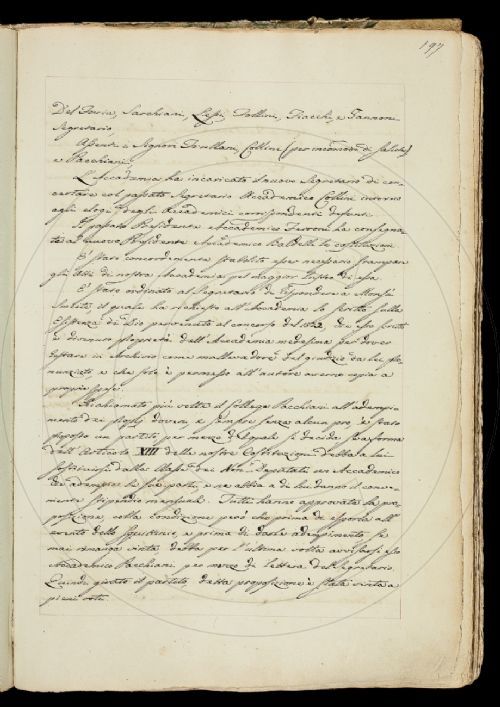 197
Del Furia, Sarchiani, Lessi, Follini, Fiacchi, e Zannoni
Segretario,
Assenti i Signori Fontani, Collini (per incomodi di salute)
e Pacchiani,
L'Accademia ha incaricato il nuovo Segretario di con-
certare col passato Segretario Accademico Collini intorno
agli elogi degli Accademici corrispondenti defonti.
Il passato Presidente Accademico Ferroni ha consegna-
to al nuovo Presidente Accademico Baldelli le costituzioni
È stato concordemente stabilito esser necessario stampar
gli Atti di nostra Accademia pel maggior lustro di essa.
È stato ordinato al Segretario di rispondere a Monsù
il quale ha richiesto all'Accademia lo scritto sulla
Esistenza di Dio pervenuto al concorso del 1812, che esso scritto
è divenuto proprietà dell'Accademia medesima per dover
restare in Archivio come mallevadore del giudizio da lei pro-
nunziato, e che solo è permesso all'autore averne copia a
proprie spese.
Richiamato più volte il Collega Pacchiani all'adempi-
mento dei suoi doveri, e sempre senza alcun pro, è stato
proposto un partito per mezzo del quale si decida se a forma
dell'Articolo XIII delle nostre Costituzioni debba a lui
sostituirsi dalla Classe dei Non-Deputati un Accademico
che adempia le sue parti, e ne abbia a di lui danno il conve-
niente stipendio mensuale. Tutti hanno approvata la pro-
posizione, colla condizione però che prima di esporla all'
evento dello Squittinio, e prima di darle adempimento se
mai rimanga vinta, debba per l'ultima volta avvisarsi esso
Accademico Pacchiani per mezzo di lettera del Segretario.
Quindi girato il partito, detta proposizione è stata vinta a
pieni voti.